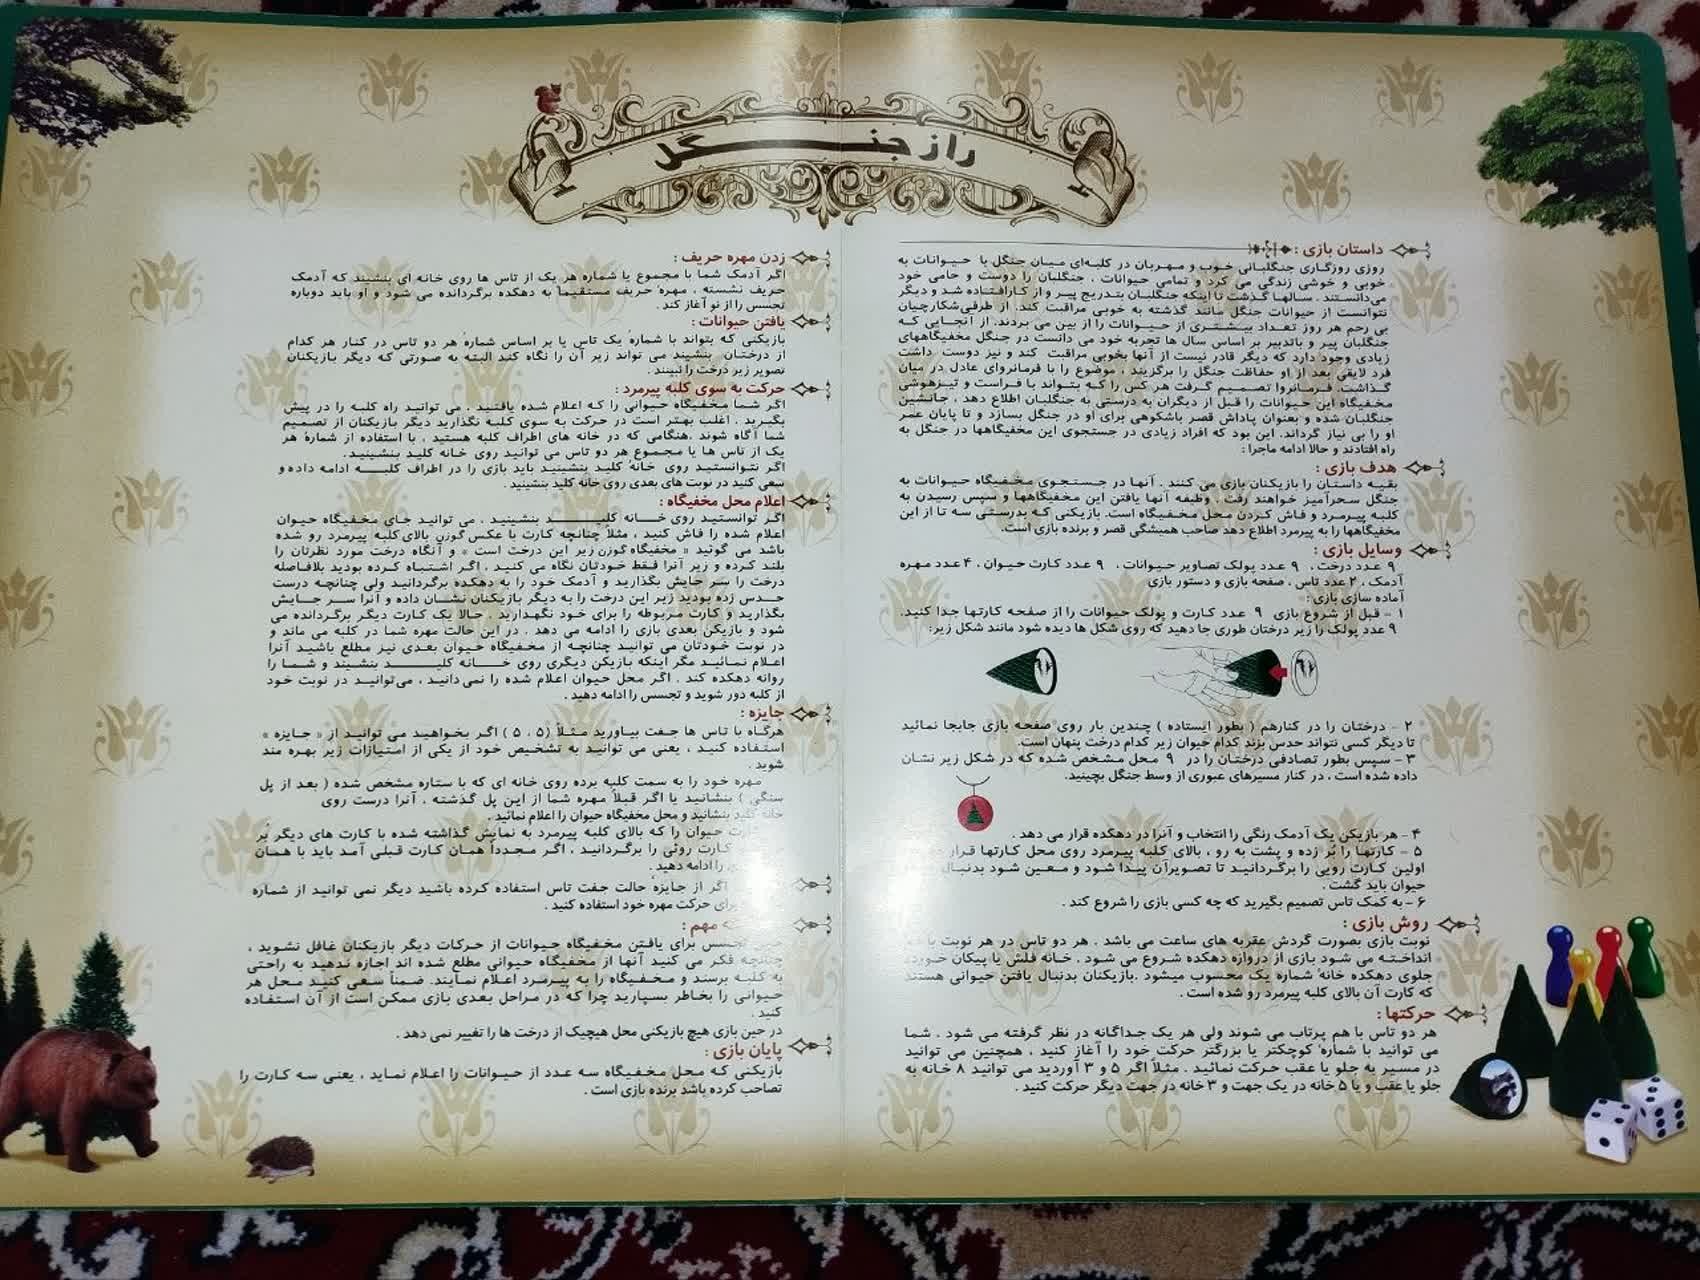 راز جنگل
داستان بازی :
روزی روزگاری جنگلبانی خوب و مهربان در کلبه‌ای میان جنگل با حیوانات به
خوبی و خوشی زندگی می کرد و تمامی حیوانات ، جنگلبان را دوست و حامی خود
می‌دانستند . سالها گذشت تا اینکه جنگلبان بتدریج پیر و از کار افتاده شد و دیگر
نتوانست از حیوانات جنگل مانند گذشته به خوبی مراقبت کند. از طرفی شکارچیان
بی رحم هر روز تعداد بیشتری از حیوانات را از بین می بردند. از آنجایی که
جنگلبان پیر و باتدبیر بر اساس سال ها تجربه خود می دانست در جنگل مخفیگاههای
زیادی وجود دارد که دیگر قادر نیست از آنها بخوبی مراقبت کند و نیز دوست داشت
فرد لایقی بعد از او حفاظت جنگل را برگزیند ، موضوع را با فرمانروای عادل در میان
گذاشت. فرمانروا تصمیم گرفت هر کس را که بتواند با فراست و تیزهوشی
مخفیگاه این حیوانات را قبل از دیگران به درستی به جنگلبان اطلاع دهد ، جانشین
جنگلبان شده و بعنوان پاداش قصر باشکوهی برای او در جنگل بسازد و تا پایان عمر
او را بی نیاز گرداند. این بود که افراد زیادی در جستجوی این مخفیگاهها در جنگل به
راه افتادند و حالا ادامه ماجرا :
هدف بازی :
بقیه داستان را بازیکنان بازی می کنند . آنها در جستجوی مخفیگاه حیوانات به
جنگل سحرآمیز خواهند رفت . وظیفه آنها یافتن این مخفیگاهها و سپس رسیدن به
کلبه پیرمرد و فاش کردن محل مخفیگاه است. بازیکنی که بدرستی سه تا از این
مخفیگاهها را به پیرمرد اطلاع دهد صاحب همیشگی قصر و برنده بازی است.
وسایل بازی :
۹ عدد درخت ، ۹ عدد پولک تصاویر حیوانات ، ۹ عدد کارت حیوان ، ۴ عدد مهره
آدمک ، ۲ عدد تاس ، صفحه بازی و دستور بازی
آماده سازی بازی :
۱ - قبل از شروع بازی ۹ عدد کارت و پولک حیوانات را از صفحه کارتها جدا کنید.
۹ عدد پولک را زیر درختان طوری جا دهید که روی شکل ها دیده شود مانند شکل زیر:
۲ - درختان را در کنارهم ( بطور ایستاده ) چندین بار روی صفحه بازی جابجا نمائید
تا دیگر کسی نتواند حدس بزند کدام حیوان زیر کدام درخت پنهان است.
۳ - سپس بطور تصادفی درختان را در ۹ محل مشخص شده که در شکل زیر نشان
داده شده است ، در کنار مسیرهای عبوری از وسط جنگل بچینید.
۴ - هر بازیکن یک آدمک رنگی را انتخاب و آنرا در دهکده قرار می دهد .
۵ - کارتها را بُر زده و پشت به رو ، بالای کلبه پیرمرد روی محل کارتها قرار
اولین کارت رویی را برگردانید تا تصویرآن پیدا شود و معین شود بدنبال
حیوان باید گشت .
۶ - به کمک تاس تصمیم بگیرید که چه کسی بازی را شروع کند .
روش بازی :
نوبت بازی بصورت گردش عقربه های ساعت می باشد . هر دو تاس در هر نوبت با هم
انداخته می شود بازی از دروازه دهکده شروع می شود . خانه فلش یا پیکان خوردی
جلوی دهکده خانهٔ شماره یک محسوب میشود .بازیکنان بدنبال یافتن حیوانی هستند
که کارت آن بالای کلبه پیرمرد رو شده است .
حرکتها :
هر دو تاس با هم پرتاب می شوند ولی هر یک جداگانه در نظر گرفته می شود . شما
می توانید با شمارهٔ کوچکتر یا بزرگتر حرکت خود را آغاز کنید ، همچنین می توانید
در مسیر به جلو یا عقب حرکت نمائید . مثلاً اگر ۵ و ۳ آوردید می توانید ۸ خانه به
جلو یا عقب و یا ۵ خانه در یک جهت و ۳ خانه در جهت دیگر حرکت کنید .
زدن مهره حریف :
اگر آدمک شما با مجموع یا شماره هر یک از تاس ها روی خانه ای بنشیند که آدمک
حریف نشسته ، مهرهٔ حریف مستقیماً به دهکده برگردانده می شود و او باید دوباره
تجسس را از نو آغاز کند .
یافتن حیوانات :
بازیکنی که بتواند با شمارهٔ یک تاس یا بر اساس شمارهٔ هر دو تاس در کنار هر کدام
از درختان بنشیند می تواند زیر آن را نگاه کند البته به صورتی که دیگر بازیکنان
تصویر زیر درخت را نبینند .
حرکت به سوی کلبه پیرمرد :
اگر شما مخفیگاه حیوانی را که اعلام شده یافتید ، می توانید راه کلبه را در پیش
بگیرید . اغلب بهتر است در حرکت به سوی کلبه نگذارید دیگر بازیکنان از تصمیم
شما آگاه شوند .هنگامی که در خانه های اطراف کلبه هستید ، با استفاده از شمارهٔ هر
یک از تاس ها یا مجموع هر دو تاس می توانید روی خانه کلید بنشینید.
اگر نتوانستید روی خانهٔ کلید بنشینید باید بازی را در اطراف کلبه ادامه داده و
سعی کنید در نوبت های بعدی روی خانه کلید بنشینید .
اعلام محل مخفیگاه :
اگر توانستید روی خانه کلید بنشینید ، می توانید جای مخفیگاه حیوان
اعلام شده را فاش کنید ، مثلاً چنانچه کارت با عکس گوزن بالای کلبه پیرمرد رو شده
باشد می گوئید « مخفیگاه گوزن زیر این درخت است » و آنگاه درخت مورد نظرتان را
بلند کرده و زیر آنرا فقط خودتان نگاه می کنید . اگر اشتباه کرده بودید بلافاصله
درخت را سر جایش بگذارید و آدمک خود را به دهکده برگردانید ولی چنانچه درست
حدس زده بودید زیر این درخت را به دیگر بازیکنان نشان داده و آنرا سر جایش
بگذارید و کارت مربوطه را برای خود نگهدارید . حالا یک کارت دیگر برگردانده می
شود و بازیکن بعدی بازی را ادامه می دهد . در این حالت مهره شما در کلبه می ماند و
در نوبت خودتان می توانید چنانچه از مخفیگاه حیوان بعدی نیز مطلع باشید آنرا
اعلام نمائید مگر اینکه بازیکن دیگری روی خانه کلید بنشیند و شما را
روانه دهکده کند . اگر محل حیوان اعلام شده را نمی دانید ، می‌توانید در نوبت خود
از کلبه دور شوید و تجسس را ادامه دهید .
جایزه :
هرگاه با تاس ها جفت بیاورید مثلاً (۵ ، ۵ ) اگر بخواهید می توانید از « جایزه »
استفاده کنید ، یعنی می توانید به تشخیص خود از یکی از امتیازات زیر بهره مند
شوید .
مهره خود را به سمت کلبه برده روی خانه ای که با ستاره مشخص شده ( بعد از پل
سنگی ) بنشانید یا اگر قبلاً مهره شما از این پل گذشته ، آنرا درست روی
خانه کلید بنشانید و محل مخفیگاه حیوان را اعلام نمائید .
کارت حیوان را که بالای کلبه پیرمرد به نمایش گذاشته شده با کارت های دیگر بُر
کارت روئی را برگردانید ، اگر مجدداً همان کارت قبلی آمد باید با همان
را ادامه دهید .
اگر از جایزهٔ حالت جفت تاس استفاده کرده باشید دیگر نمی توانید از شماره
برای حرکت مهره خود استفاده کنید .
مهم :
تجسس برای یافتن مخفیگاه حیوانات از حرکات دیگر بازیکنان غافل نشوید ،
چنانچه فکر می کنید آنها از مخفیگاه حیوانی مطلع شده اند اجازه ندهید به راحتی
به کلبه برسند و مخفیگاه را به پیرمرد اعلام نمایند. ضمناً سعی کنید محل هر
حیوانی را بخاطر بسپارید چرا که در مراحل بعدی بازی ممکن است از آن استفاده
کنید .
در حین بازی هیچ بازیکنی محل هیچیک از درخت ها را تغییر نمی دهد .
پایان بازی :
بازیکنی که محل مخفیگاه سه عدد از حیوانات را اعلام نماید ، یعنی سه کارت را
تصاحب کرده باشد برنده بازی است .